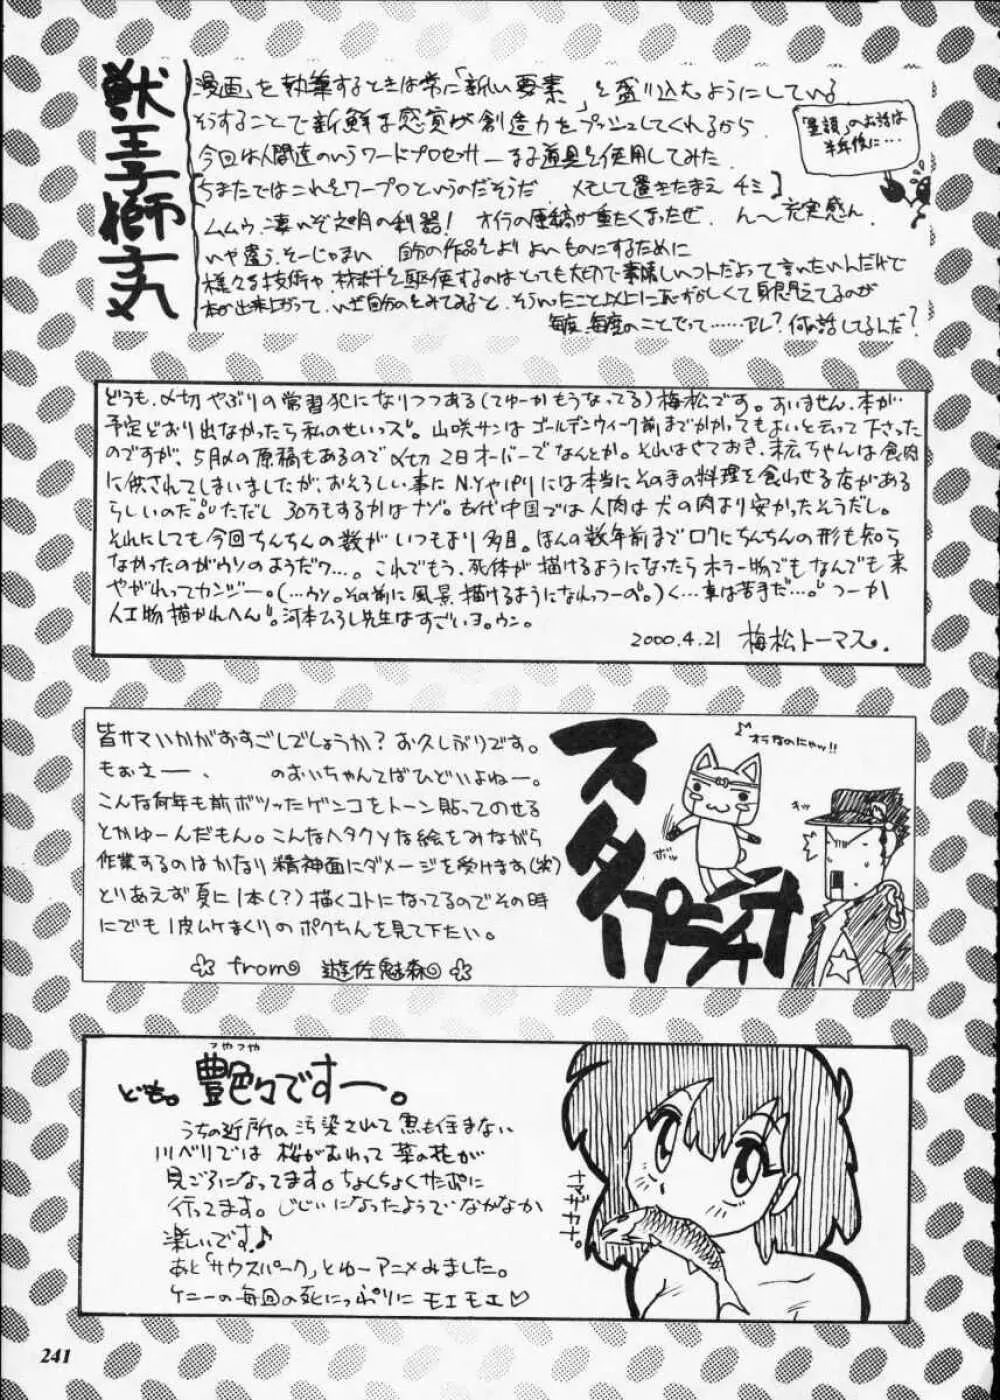 獣王子獅子丸
漫画を執筆するときは常に「新しい要素」を盛り込むようにしている
そうすることで新鮮な感覚が創造力をプッシュしてくれるから.
今回は人間達のいうワードプロセッサーなる道具を使用してみた.
ちまたではこれをワープロというのだそうだ メモして置きたまえ チミ
ムムウ,凄いぞ文明の利器! オイラの原稿が重たくなったぜ. ん〜充実感ん.
いや違う,そーじゃない 自分の作品をよりよいものにするために
様々な技術や,材料を駆使するのはとても大切で素晴しいコトだよって言いたいんだけど
本が出来上がって,いざ自分のをみてみると,そういったこと以上にはずかしくて身悶えてるのが
毎度,毎度のことでって……アレ?何の話してるんだ?
のお話は
半年後に…
どうも、〆切やぶりの常習犯になりつつある(てゆーかもうなってる)梅松です。すいません、本が
予定どおり出なかったら私のせいっス。山咲サンはゴールデンウィーク前までかかってもよいと云って下さった
のですが、5月〆の原稿もあるので〆切2日オーバーでなんとか。それはさておき、末広ちゃんは食肉
に供されてしまいましたが、おそろしい事にN.Yやパリには本当にその手の料理を食わせる店がある
らしいのだ。ただし30万もするかはナゾ。古代中国では人肉は犬の肉より安かったそうだし。
それにしても今回ちんちんの数がいつもより多目。ほんの数年前までロクにちんちんの形も知ら
なかったのがウソのようだワ…。これでもう、死体が描けるようになったらホラー物でもなんでも来
やがれってカンジー。(…ウソ。その前に風景描けるようになれっつーの。)く…車は苦手だ…。つーか
人工物描かれへん。河本ひろし先生はすごいヨ。ウン。
2000.4.21 梅松トーマス.
皆サマいかがおすごしでしょうか?お久しぶりです。
もぉさー、 のおいちゃんてばひどいよねー。
こんな何年も前ボツったゲンコをトーン貼ってのせる
とかゆーんだもん。こんなヘタクソな絵をみながら
作業するのはかなり精神面にダメージを受けます(笑)
とりあえず夏に1本(?)描くコトになってるのでその時
にでも1皮ムケまくりのボクちんを見て下たい。
☆ from 遊佐魅森 ☆
スタープラチナ
♪オラなのにャッ!!
ボッ
オッ
ども。艶々ですー。
つやつや
うちの近所の汚染されて魚も住まない
川べりでは 桜がむれって菜の花が
見ごろになってます。ちょくちょくサポに
行ってます。じじいになったようでなかなか
楽しいです♪
あと「サウスパーク」とゆーアニメみました。
ケニーの毎回の死にっぷりにモエモエ♡
ナマザカナ。
241